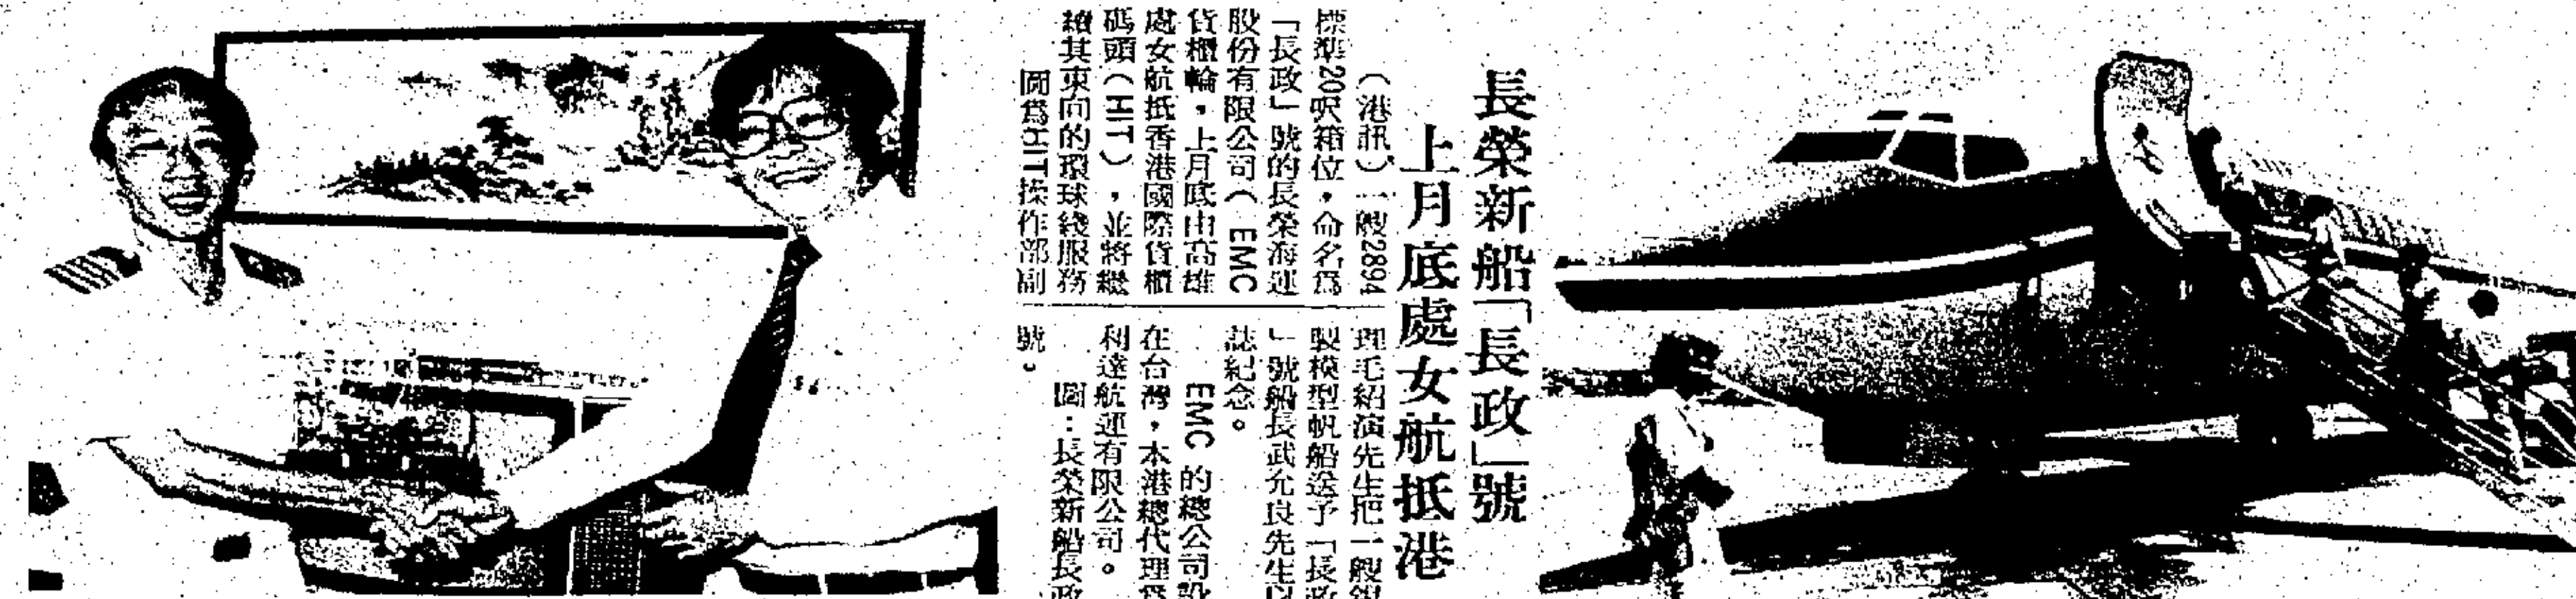 長榮新船「長政」號
上月底處女航抵港
（港訊）一艘2894
標準20呎箱位，命名爲
「長政」號的長榮海運
股份有限公司（EMC
貨櫃輪，上月底由高雄
處女航抵香港國際貨櫃
碼頭（HIT），並將繼
續其東向的環球綫服務
圖爲HIT操作部副
理毛紹演先生把一艘銀
製模型帆船送予「長政
」號船長武允良先生以
誌紀念。
EMC的總公司設
在台灣，本港總代理爲
利達航運有限公司。
圖：長榮新船長政
號。